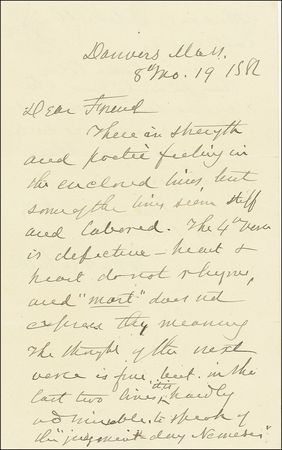 Danvers Mass.
8th Mo. 19 1882
Dear Friend
There is strength
and poetic feeling in
the enclosed lines, but
some of the lines seem stiff
and labored. The 4th verse
is defective – heart &
heart do not rhyme,
and "mart" does not
express thy meaning
The thought of the next
verse is fine, but in the
last two lines, 'tis hardly
admissable to speak of
the "judgment-day Nemesis"